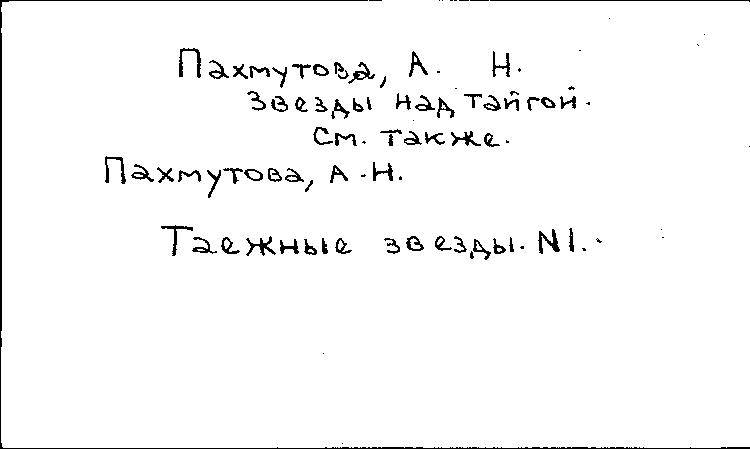 Пахмутова, А. Н.
Звезды над тайгой.
См. также.
Пахмутова, А. Н.
Таежные звезды. N1.